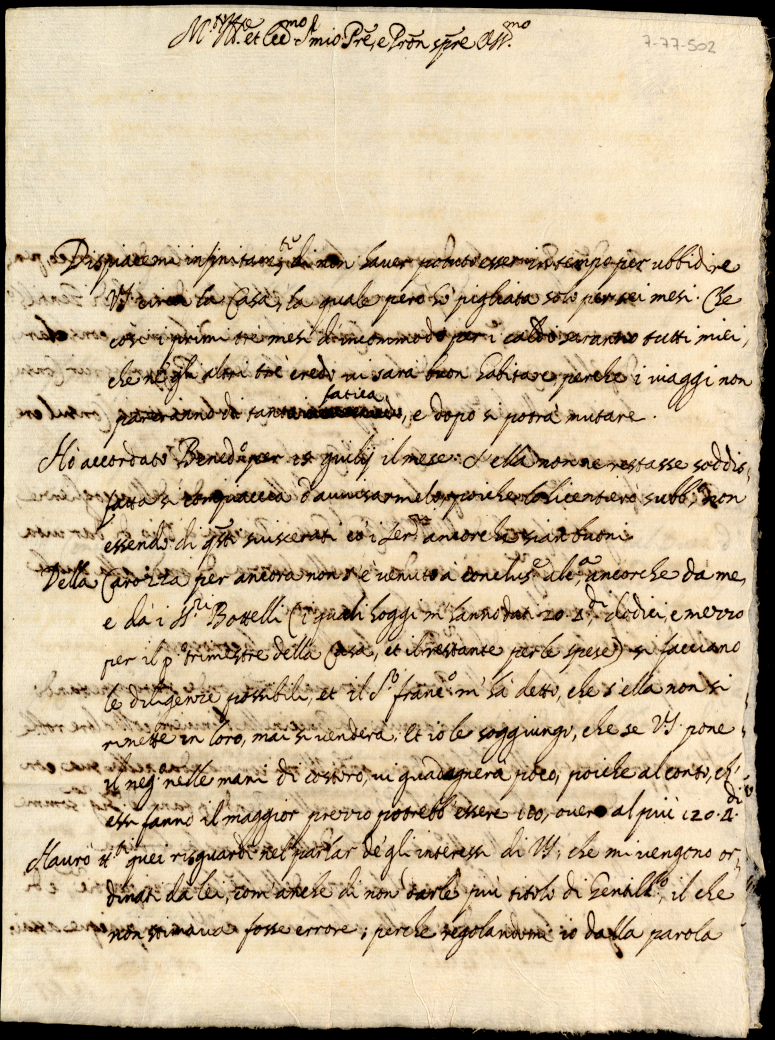 M.to Ill.re et Ecc.mo S.r mio Pre, e Pron sp̄re Oss.mo
7-77-502
Dispiacemi infinitam.te di non haver potuto esser in tempo per ubbidire
VS circa la Casa, la quale però hò pigliata solo per sei mesi. Che
così i primi tre mesi d'incommodo per i caldi saranno tutti miei,
che ne gli altri trè credo vi sarà buon habitare perche i viaggi non
pareranno di tanta fatica, e dopo si potrà mutare.
Hò accordato Bened.o per 15 giulij il mese. S'ella non ne restasse soddis,
fatta si compiaccia d'avvisarmelo, poiche lo licentierò subb.o, non
essendo di q.sti sviscerati co i Ser.ri ancorche sian buoni
Della Carozza per ancora non s'è venuto a conclus.e alc.a ancorche da me,
e da i SS.ri Bottelli (i quali hoggi m'hanno dati 20. ∇.di dodici, e mezzo
per il p.o trimestre della Casa, et il restante per le spese) si facciano
le diligenze possibili, et il S.r Franc.o m'hà detto, che s'ella non si
rimette in loro, mai si venderà. Et io le soggiungo, che se VS. pone
il neg.o nelle mani di costoro, vi guadagnerà poco, poiche al conto, ch'
essi fanno il maggior prezzo potrebb'essere 100, overo al più 120. ∇.di
Haurò tt.i quei risguardi nel parlar de gli interessi di VS, che mi vengono or,
dinati da lei, com'anche di non darle più titolo di Gentilh.o, il che
non stimava fosse errore; perche regolandomi io dalla parola